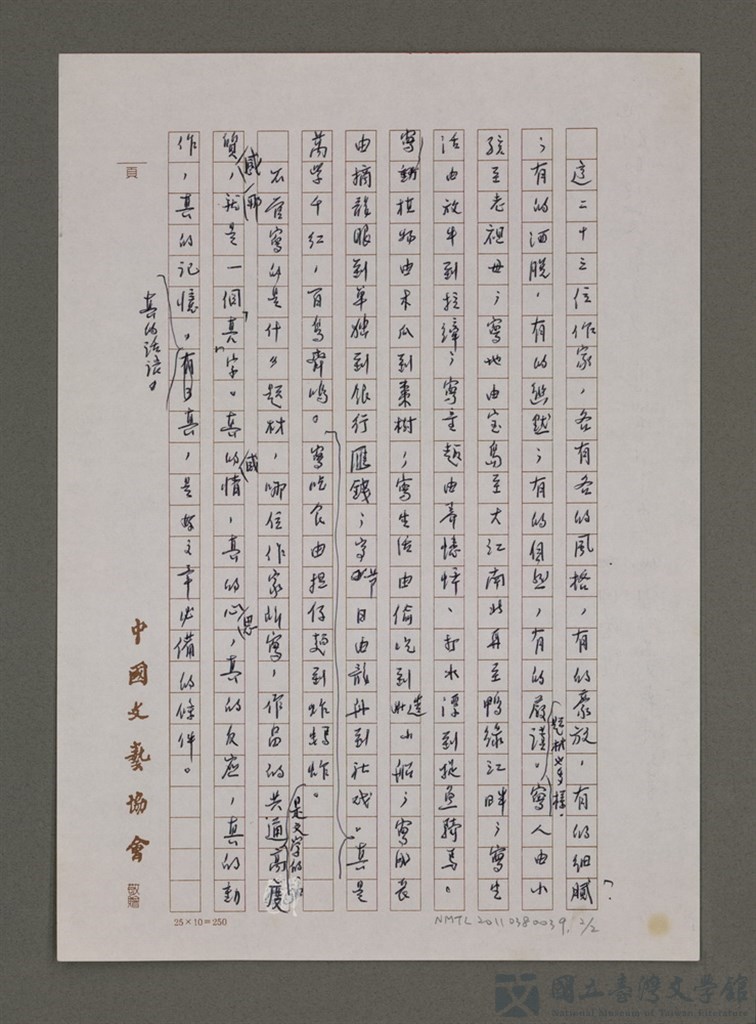 這二十三位作家，各有各的風格，有的豪放，有的細膩
；有的洒脫，有的幽默；有的，有的嚴謹。題材也多樣，寫人由小
孩至老祖母；寫地由宝島至大江南北再至鴨綠江畔；寫生
活由放牛到拉縴；寫童趣由弄蟋蟀、打水漂到捉魚騎馬。
寫植物由木瓜到棗樹；寫生活由偷吃到造小船；寫服裝
由摘龍眼到草蜢到銀行匯錢；寫節日由龍舟到社戲。真是
萬紫千紅，百鳥齊鳴。寫吃食由担仔麵到炸螞蚱。
不管寫的是什么題材，哪位作家所寫，作品的共通是文字的高度
質感，那就是一個"真"字。真的情感，真的心思，真的反應，真的動
作，真的記憶，真的話語，有了真，是好文章必備的條件。
頁
中國文藝協會
敬贈
25×10=250
NMTL20110380039, 2/2
國立臺灣文學館
National Museum of Taiwan Literature